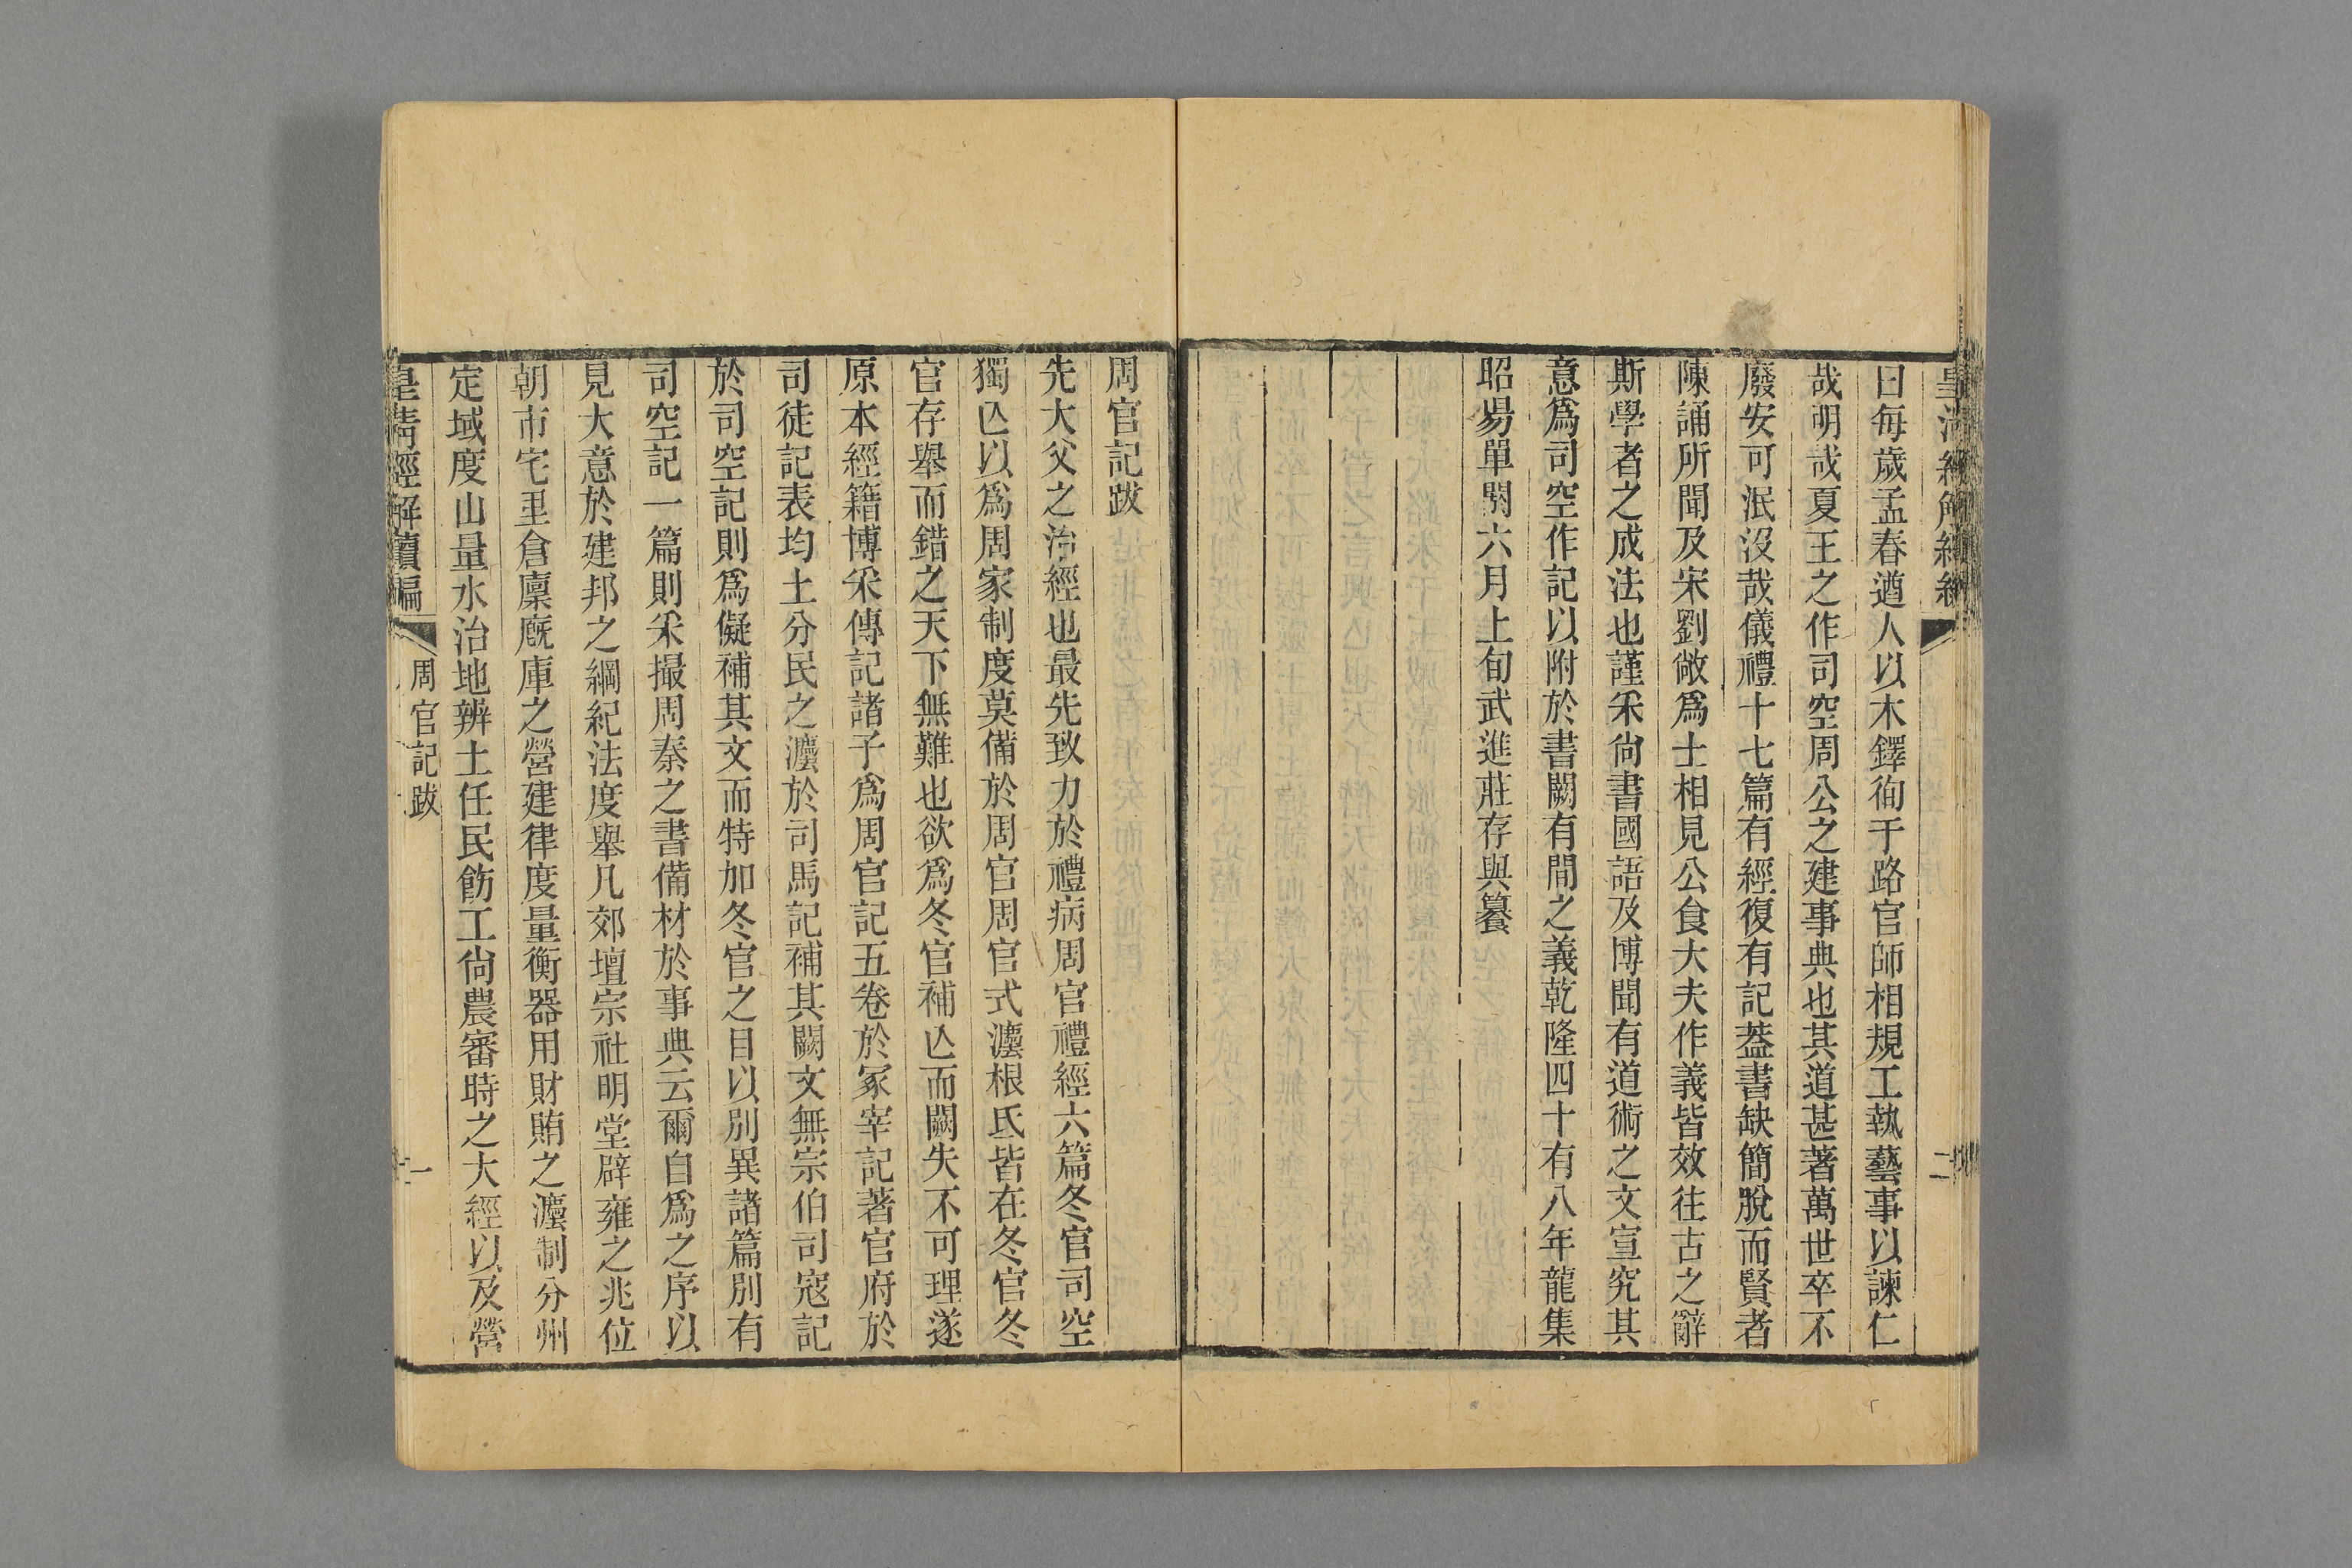 曰每歲孟春遒人以木鐸徇于路官師相規工執藝事以諫仁
哉明哉夏王之作司空周公之建事典也其道甚著萬世卒不
廢安可泯沒哉儀禮十七篇有經復有記蓋書缺簡脫而賢者
陳誦所聞及宋劉敞爲士相見公食大夫作義皆效往古之辭
斯學者之成法也謹采尙書國語及博聞有道術之文宣究其
意爲司空作記以附於書闕有間之義乾隆四十有八年龍集
昭昜單閼六月上旬武進莊存與纂
二
周官記跋
先大父之治經也最先致力於禮病周官禮經六篇冬官司空
獨亾以爲周家制度莫備於周官周官式灋根氐皆在冬官冬
官存舉而錯之天下無難也欲爲冬官補亾而闕失不可理遂
原本經籍博采傳記諸子爲周官記五卷於冢宰記著官府於
司徒記表均土分民之灋於司馬記補其闕文無宗伯司寇記
於司空記則爲儗補其文而特加冬官之目以別異諸篇別有
司空記一篇則采撮周秦之書備材於事典云爾自爲之序以
見大意於建邦之綱紀法度舉凡郊壇宗社明堂辟雍之兆位
朝市宅里倉廩廐庫之營建律度量衡器用財賄之灋制分州
定域度山量水治地辨土任民飭工尙農審時之大經以及營
皇清經解續編
周官記跋
一